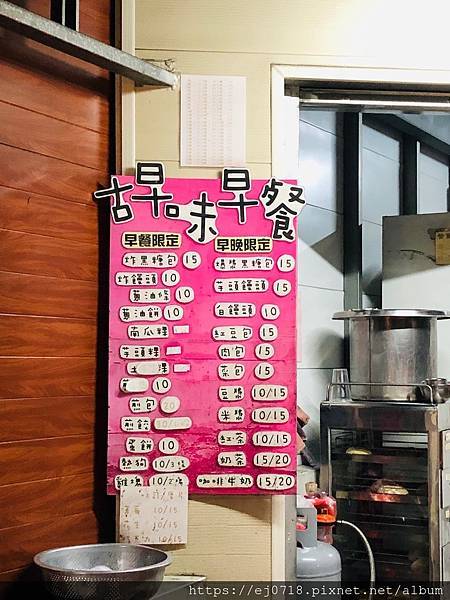 古早味早餐
早餐限定
炸黑糖包 15
炸饅頭 10
蔥油條 10
蔥油餅 10
南瓜粿
芋頭粿
10
煎包
煎餃
蛋餅 10
熱狗
雞塊
早晚限定
爆漿黑糖包 15
芋頭饅頭 15
白饅頭 10
紅豆包 15
肉包 15
菜包 15
豆漿 10/15
米漿 10/15
紅茶 10/15
奶茶 15/20
咖啡牛奶 15/20
10/15
10/15
10/15
https://ej0718.pixnet.net/album